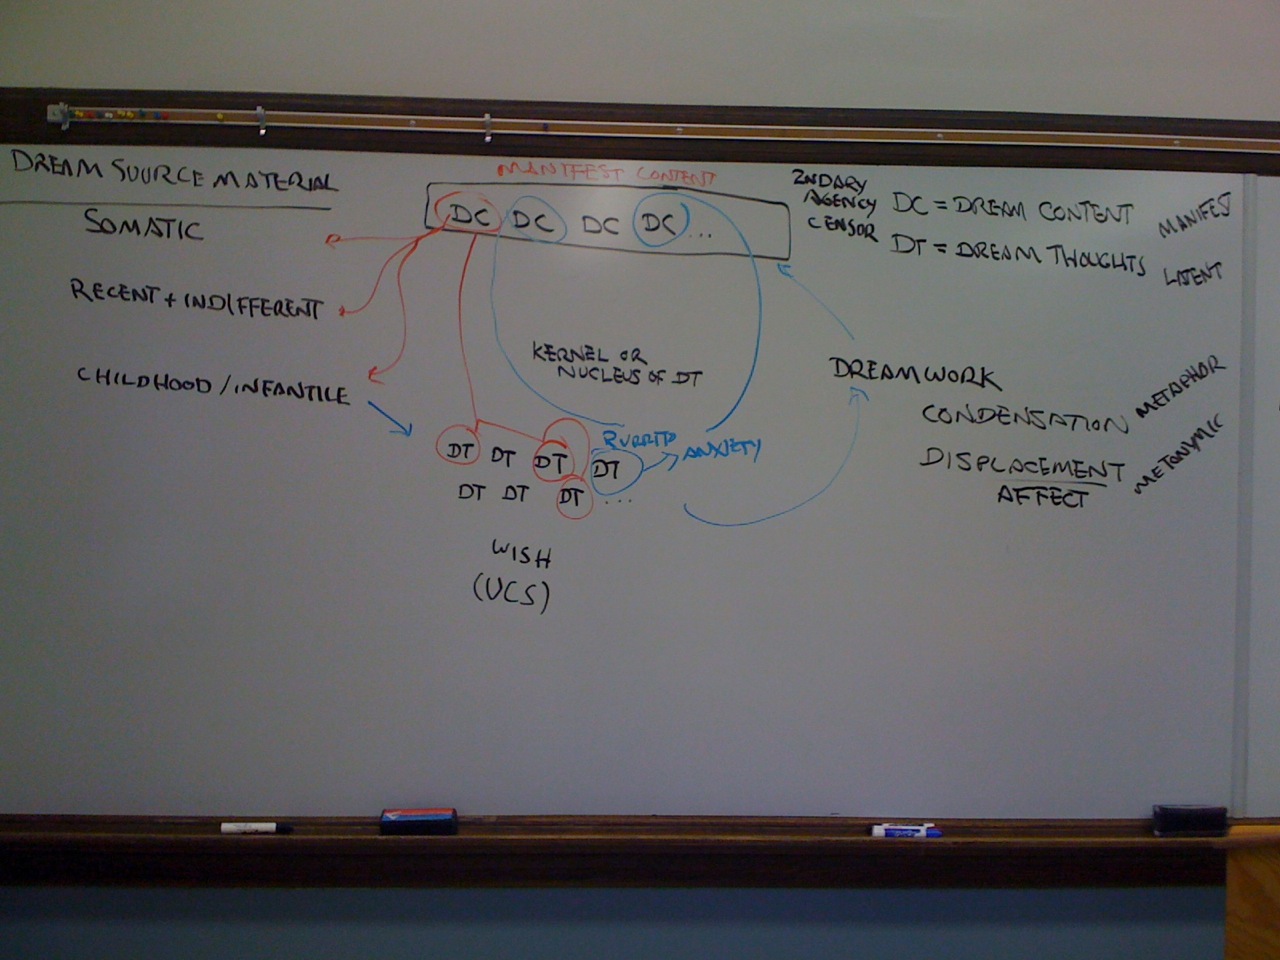 DREAM SOURCE MATERIAL
SOMATIC
RECENT + INDIFFERENT
CHILDHOOD/INFANTILE
MANIFEST CONTENT
DC DC DC DC ...
2NDARY
AGENCY
CENSOR
DC = DREAM CONTENT MANIFEST
DT = DREAM THOUGHTS LATENT
KERNEL OR
NUCLEUS OF DT
ANXIETY
DT DT DT DT
DT DT DT ...
WISH
(UCS)
DREAMWORK
CONDENSATION METAPHOR
DISPLACEMENT METONYMIC
AFFECT